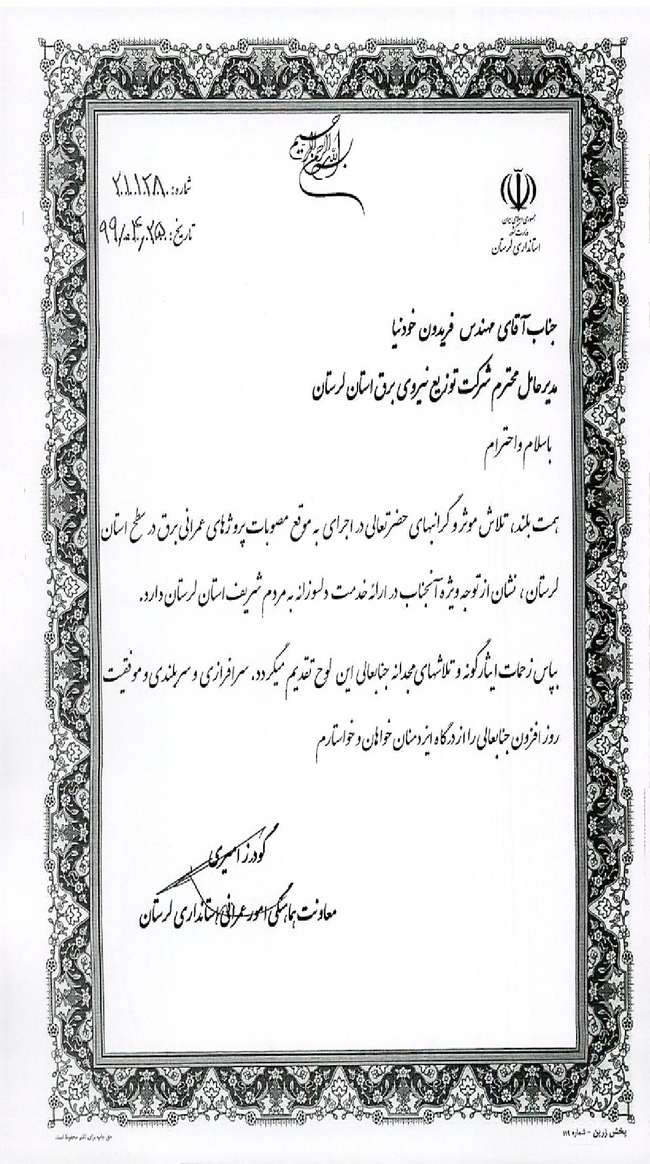 بسم الله الرحمن الرحیم
جمهوری اسلامی ایران
وزارت کشور
استانداری لرستان
شماره: ۲۱۰۱۲۸۰
تاریخ: ۹۹/۰۴/۲۵
جناب آقای مهندس فریدون خودنیا
مدیرعامل محترم شرکت توزیع نیروی برق استان لرستان
باسلام و احترام
همت بلند، تلاش موثر و گرانبهای حضرتعالی در اجرای به موقع مصوبات پروژهای عمرانی برق در سطح استان
لرستان، نشان از توجه ویژه آنجناب در ارائه خدمت دلسوزانه به مردم شریف استان لرستان دارد.
بپاس زحمات ایثارگونه و تلاشهای مجدانه جنابعالی این لوح تقدیم میگردد، سرافرازی و سربلندی و موفقیت
روز افزون جنابعالی را از درگاه ایزدمنان خواهان و خواستارم
گودرز امیری
معاونت هماهنگی امور عمرانی استانداری لرستان
پخش زرین - شماره ۱۱۹
حق چاپ برای ناشر محفوظ است